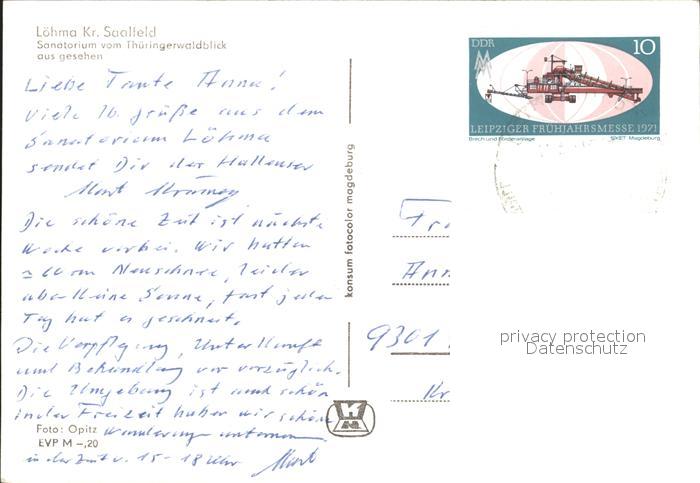 Löhma Kr. Saalfeld
Sanatorium vom Thüringerwaldblick
aus gesehen
Liebe Tante Anna!
Viele lb. grüße aus dem
Sanatorium Löhma
sendet Dir der Hallenser
Die schöne Zeit ist nächste
Woche vorbei. Wir hatten
≈ 60 cm Neuschnee, leider
aber keine Sonne, fast jeden
Tag hat es geschneit.
Die Verpflegung, Unterkunft
und Behandlung war vorzüglich.
Die Umgebung ist auch schön
in der Freizeit haben wir schöne
Wanderungen unternommen
in der Zeit v. 15 - 18 Uhr
Foto: Opitz
EVP M –,20
konsum fotocolor magdeburg
DDR
MM
10
LEIPZIGER FRÜHJAHRSMESSE 1971
Brech und Förderanlage
SKET Magdeburg
Fra
Ann
9301
Kr
privacy protection
Datenschutz